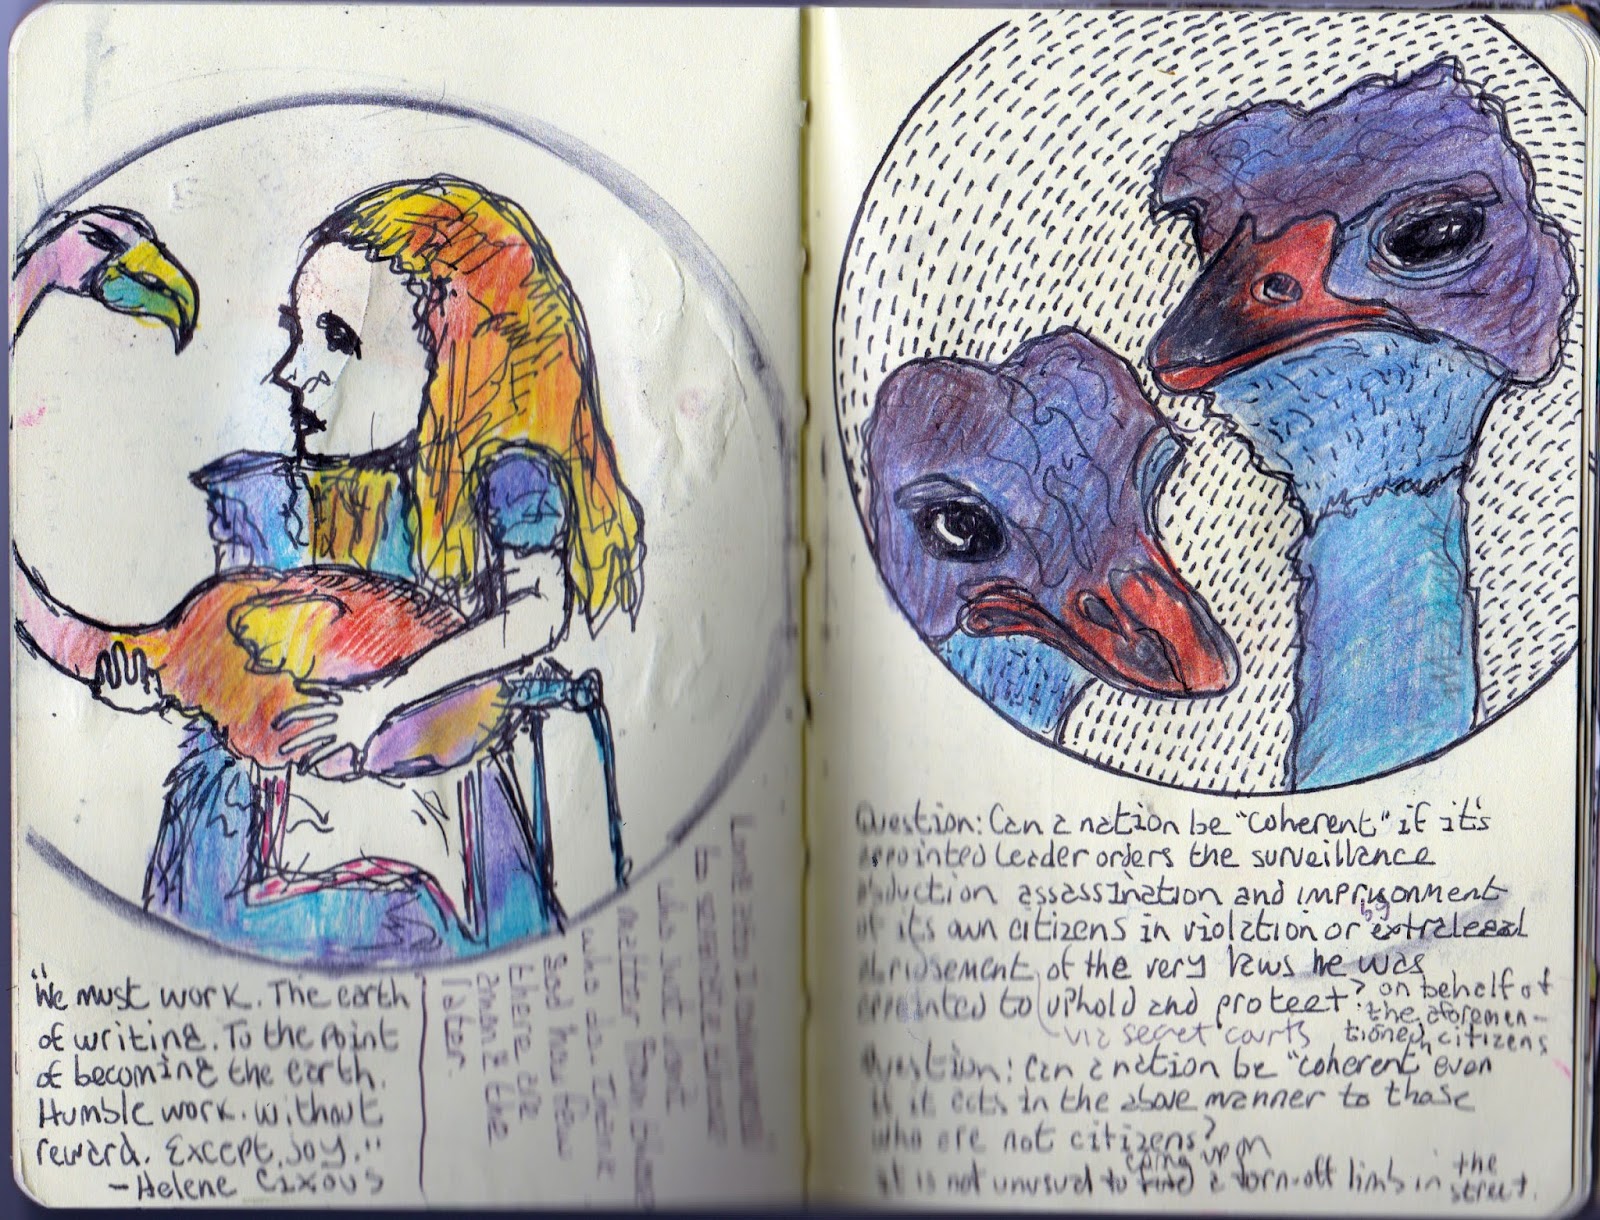 "We must work. The earth
of writing. To the point
of becoming the earth.
Humble work. Without
reward. Except, joy."
- Helene Cixous
to
who just don't
matter from
who do.
sad how few
there are
among the
later
Question: Can a nation be "coherent" if it's
appointed leader orders the surveillance
abduction assassination and imprisonment
of its own citizens in violation or by extralegal
abridgement of the very laws he was
appointed to uphold and protect? on behalf of
the aforemen-
via secret courts tioned citizens
Question: Can a nation be "coherent" even
if it acts in the above manner to those
who are not citizens?
coming upon
It is not unusual to find a torn-off limb in the
street.